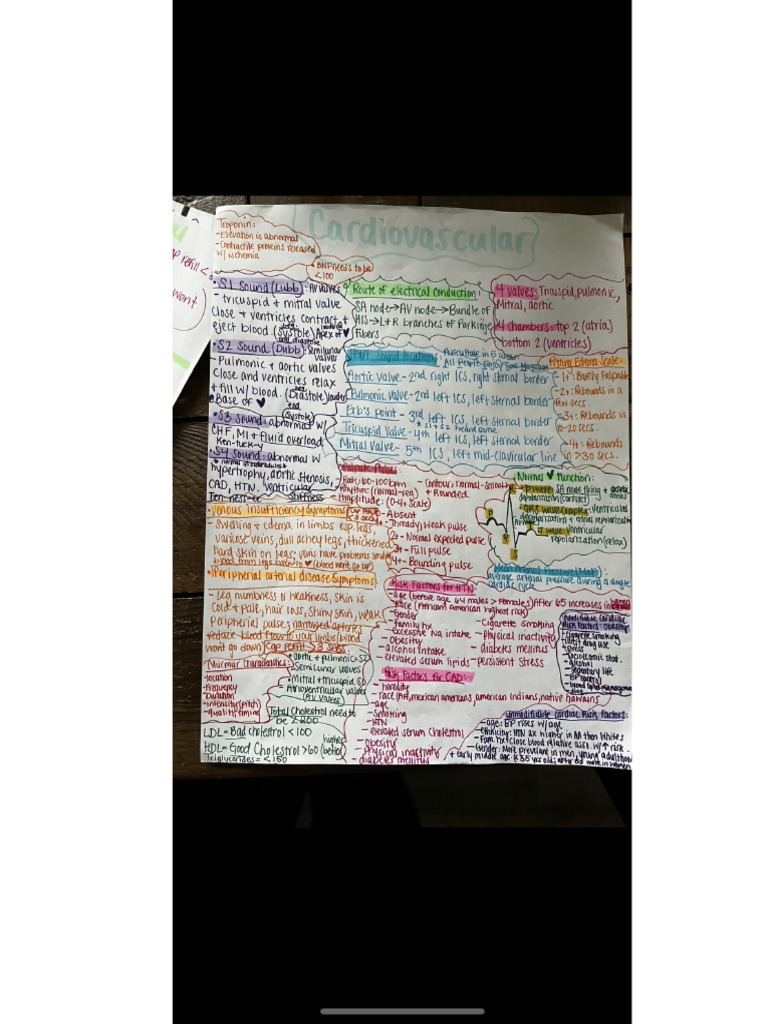 Cardiovascular
Troponin:
- Elevation is abnormal
- Contractile proteins released
w/ ischemia
* BNP needs to be
< 100
• S1 Sound (Lubb): AV valves
- tricuspid + mitral valve
Close + ventricles contract +
eject blood. (Systole) Apex of ♥
• S2 Sound (Dubb): Semilunar
valves
- Pulmonic + aortic valves
Close and ventricles relax
+ fill w/ blood. (Diastole) louder
@ Base of ♥
• S3 sound: abnormal w/
CHF, MI + fluid overload
Ken-tuck-y
• S4 sound: abnormal w/
hypertrophy, aortic stenosis,
CAD, HTN, ventricular
Ten-ness-ee stiffness
Route of electrical conduction:
SA node → AV node → Bundle of
His → L + R branches of Purkinje
Fibers
4 valves: Tricuspid, pulmonic,
Mitral, aortic
4 chambers: top 2 (atria)
bottom 2 (ventricles)
Aortic Valve - 2nd right ICS, right sternal border
Pulmonic Valve - 2nd left ICS, left sternal border
Erb's point - 3rd left ICS, left sternal border
* S1 + S2 heard same
Tricuspid Valve - 4th left ICS, left sternal border
Mitral Valve - 5th ICS, left mid-clavicular line
Pitting Edema Scale:
- 1+: Barely Palpable
- 2+: Rebounds in a
few secs.
- 3+: Rebounds in
10-20 secs.
- 4+: Rebounds
in > 30 sec.
• Venous Insufficiency Symptoms:
- Swelling + edema in limbs esp. legs,
varicose veins, dull achey legs, thickened
hard skin on legs; veins have problems
blood from legs back to ♥ (blood won't go up)
• Peripheral arterial disease Symptoms:
- Leg numbness or weakness, skin is
cold + pale, hair loss, shiny skin, weak
peripheral pulse; narrowed arteries
reduce blood flow to your limbs (blood
won't go down) Cap refill > 3 secs
Rate: 60-100 bpm
Rhythm: (normal-reg)
Amplitude: (0-4+ Scale)
- Contour: normal-smooth
+ Rounded
- Absent
1+ - Thready, weak pulse
2+ - Normal expected pulse
3+ - Full pulse
4+ - Bounding pulse
Normal ♥ Function:
P wave: SA node firing +
depolarization (contract)
QRS wave complex: ventricular
depolarization + atrial repolarization
T wave: ventricular
repolarization (relax)
P
R
Q
S
T
average arterial pressure during a single
cardiac cycle
Risk Factors for HTN:
- age (before age 64 males > females) After 65 increases in
- Race (African american highest risk)
- Gender
- Family hx
- Excessive Na intake
- Obesity
- alcohol intake
- elevated serum lipids
- Cigarette smoking
- Physical inactivity
- diabetes mellitus
- persistent stress
Modifiable cardiac
Risk Factors: Obesity
- Cigarette smoking
- illicit drug use
- stress
- Socioeconomic stat.
- alcohol
- sedentary life
- BP control
- diet
Murmur Characteristics:
- location
- Frequency
- Duration
- intensity (pitch)
- quality, timing
* aortic + pulmonic = S2
Semilunar valves
Mitral + tricuspid S1
Atrioventricular valves
(AV Valves)
Total Cholestrol need to
be < 200
LDL = Bad cholestrol < 100
HDL = Good Cholestrol > 60 (higher
better)
Triglycerides = < 150
Risk Factors for CAD:
- heredity
- race (AA, mexican americans, american indians, native hawaiins
- age
- smoking
- HTN
- Elevated serum cholestrol
- obesity
- Physical inactivity
- diabetes mellitus
Unmodifiable cardiac Risk Factors:
- age: BP rises w/ age
- ethnicity: HTN 2x higher in AA then whites
- Fam. hx: close blood relative assc. w/ ↑ risk
- Gender: More prevalent in men, young adulthood